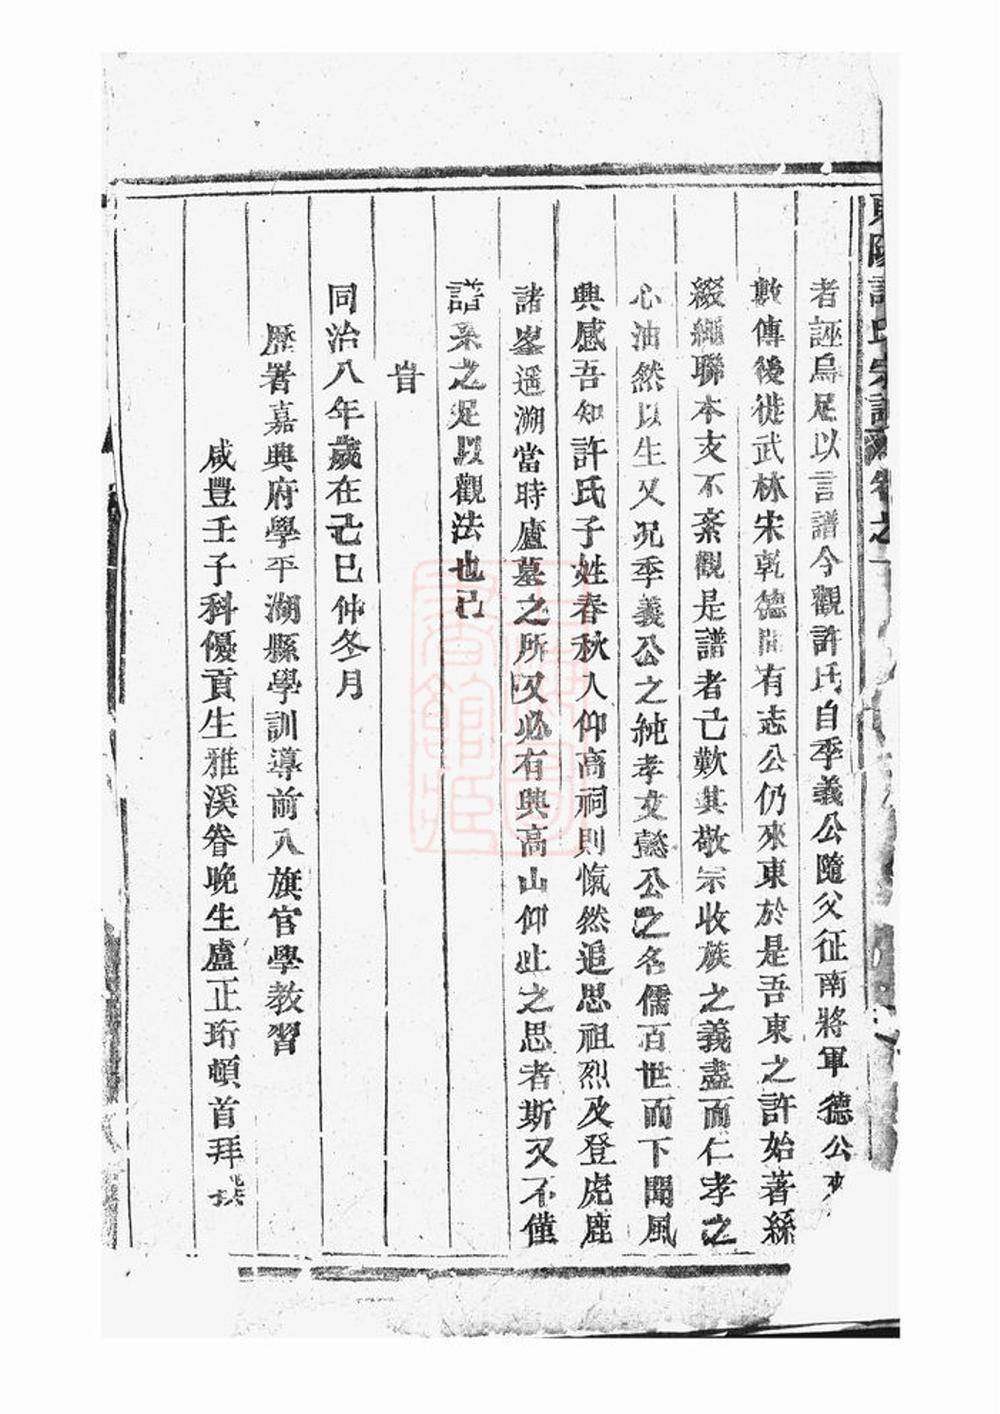 東陽許氏宗譜 卷之一
者誣烏足以言譜今觀許氏自季義公隨父征南將軍 德公來
數傳後徙武林宋乾德間有志公仍來東於是吾東之許始著緜
綴繩聯本支不紊觀是譜者已歎其敬宗收族之義盡而仁孝之
心油然以生又况季義公之純孝文懿公之名儒百世而下聞風
興感吾知許氏子姓春秋入仰高祠則愾然追思祖烈及登虎鹿
諸峯遥溯當時廬墓之所又必有興高山仰止之思者斯又不僅
譜系之足以觀法也已
旹
同治八年歲在己巳仲冬月
歷署嘉興府學平湖縣學訓導前八旗官學教習
咸豐壬子科優貢生雅溪眷晚生盧正珩頓首拜譔
上海圖書館藏